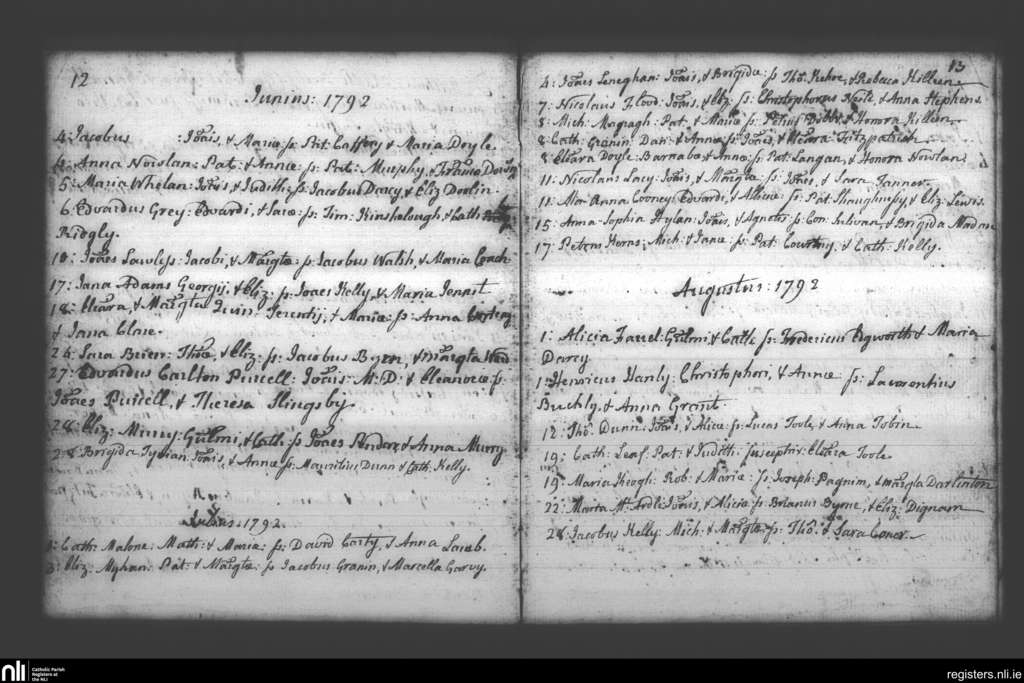 12
Junius: 1792
4: Jacobus : Joãis, & Maria: sp: Pat: Caffrey & Maria Doyle.
4: Anna Nowlan: Pat: & Annæ: sp: Pat: Murphy, &
5: Maria Whelan: Joãis, & Judith: sp: Jacobus Darcy, & Eliz: Doolin.
6: Edvardus Grey: Edvardi, & Saræ: sp: Tim: Kinshelough, & Cath:
Ridgly.
10: Joães Lawless: Jacobi, & Margtæ: sp: Jacobus Walsh, & Maria Coach
17: Jana Adams Georgii, & Eliz: sp: Joaes Kelly, & Maria Jennet
18: Clara, & Margta Quin: Terentij, & Mariæ: sp: Anna
& Jana Clare.
24: Sara Brien: Thõæ, & Eliz: sp: Jacobus Byrn, & Margta Ward
27: Edvardus Carlton Purcell: Joãis: M: D: & Eleanoræ sp:
Joães Purcell, & Theresa Slingsby.
28: Eliz: Murry: Gulmi, & Cath: sp: Joães & Anna Murry
28: Brigida Tyrian: Joãis, & Annæ: sp: Mauritius Dunn & Cath: Kelly.
Julius. 1792.
Cath: Malone: Math: & Maria: sp: David Carty, & Anna Lamb.
3: Eliz: Myhan: Pat: & Margtæ: sp: Jacobus Granin, & Marcella Garvy.
13
4: Joães Leneghan: Joãis, & Brigidæ: sp: Thõ: Kehoe, & Rebeca Killeen
7: Nicolaus Flood: Joãis, & Eliz: sp: Christophorus Neile, & Anna Stephens
8: Mich: Magragh: Pat: & Mariæ: sp: Petrus Dibbs & Honora Killeen
8: Cath: Granin: Dan: & Anna: sp: Joães, & Fitzpatrick
8: Clara Doyle: Barnabæ & Anna: sp: Pat: Langan, & Honora Nowlan
11: Nicolaus Lacy: Joãis & Margtæ: sp: Joães, & Sara Tanner
11: Mar: Anna Cooney: Edvardi, & Aliciæ: sp: Pat: Shaughnessy, & Eliz: Lewis.
15: Anna-Sophia Hylan: Joãis, & Agnetis: sp: Con: Sulivan, & Brigida Madan
17: Petrus Kerns: Mich: & Janæ: sp: Pat: Courtny, & Cath: Kelly.
Augustus: 1792
1: Alicia Farrel: Gulmi & Cath: sp: Fredericus Egworth & Maria
Darcy
1: Henricus Hanly: Christophori, & Annæ: sp: Laurentius
& Anna Grant
12: Thõ: Dunn: Joãis, & Aliciæ: sp: Lucas Toole, & Anna Tobin
19: Cath: Leaf: Pat: & Judith: susceptrix: Clara Toole
19: Maria Keogh: Rob: & Mariæ: sp: Joseph: Pagnim, & Margta Darlinton
22: Marta Mc Ardle: Joãis, & Aliciæ: sp: Brianus Byrne, & Eliz: Dignam
28: Jacobus Kelly: Mich: & Margtæ: sp: Thõ: & Sara Coner.
nli
Catholic Parish
Registers at
the NLI
registers.nli.ie